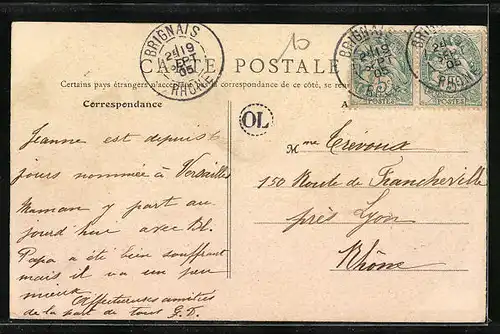 BRIGNAIS
19
SEPT
05
RHONE
10
CARTE POSTALE
Certains pays étrangers n'acceptent pas de correspondance de ce côté, se
Correspondance
A
OL
BRIGNAIS
19
SEPT
05
RHONE
POSTES
BRIGNAIS
19
05
RHONE
POSTES
Jeanne est depuis
jours nommée à Versailles
Maman y part au
jourd'hui avec Bl.
Papa a été bien souffrant
mais il va un peu
mieux. Affectueuses amitiés
de la part de tous G.D.
Mme Trévoux
150 Route de Francheville
près Lyon
Rhône